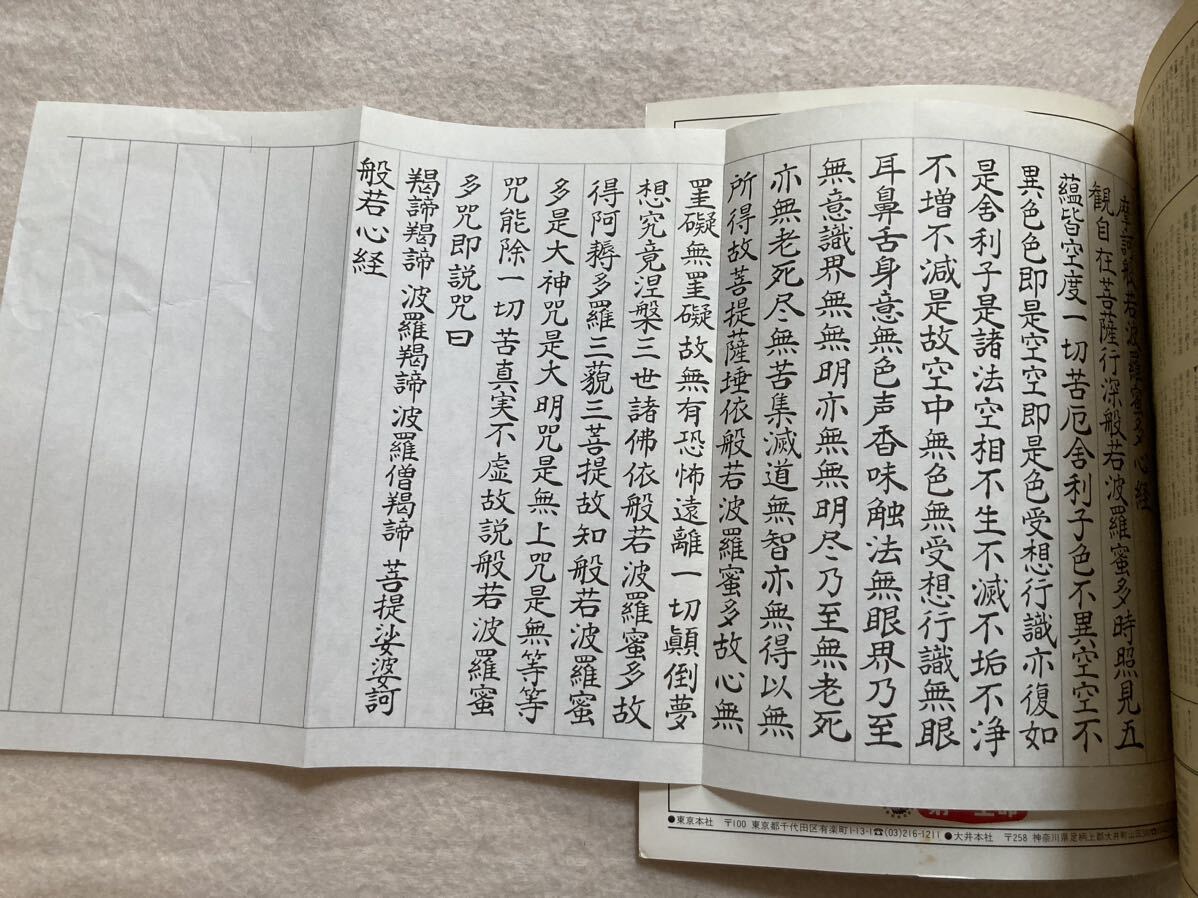 摩訶般若波羅蜜多心経
観自在菩薩行深般若波羅蜜多時照見五
蘊皆空度一切苦厄舎利子色不異空空不
異色色即是空空即是色受想行識亦復如
是舎利子是諸法空相不生不滅不垢不浄
不増不減是故空中無色無受想行識無眼
耳鼻舌身意無色声香味触法無眼界乃至
無意識界無無明亦無無明尽乃至無老死
亦無老死尽無苦集滅道無智亦無得以無
所得故菩提薩埵依般若波羅蜜多故心無
罣礙無罣礙故無有恐怖遠離一切顛倒夢
想究竟涅槃三世諸佛依般若波羅蜜多故
得阿耨多羅三藐三菩提故知般若波羅蜜
多是大神咒是大明咒是無上咒是無等等
咒能除一切苦真実不虚故説般若波羅蜜
多咒即説咒曰
羯諦羯諦 波羅羯諦 波羅僧羯諦 菩提娑婆訶
般若心経
●東京本社 〒100 東京都千代田区有楽町1-13-1☎(03)216-1211 ●大井本社 〒258 神奈川県足柄上郡大井町山田